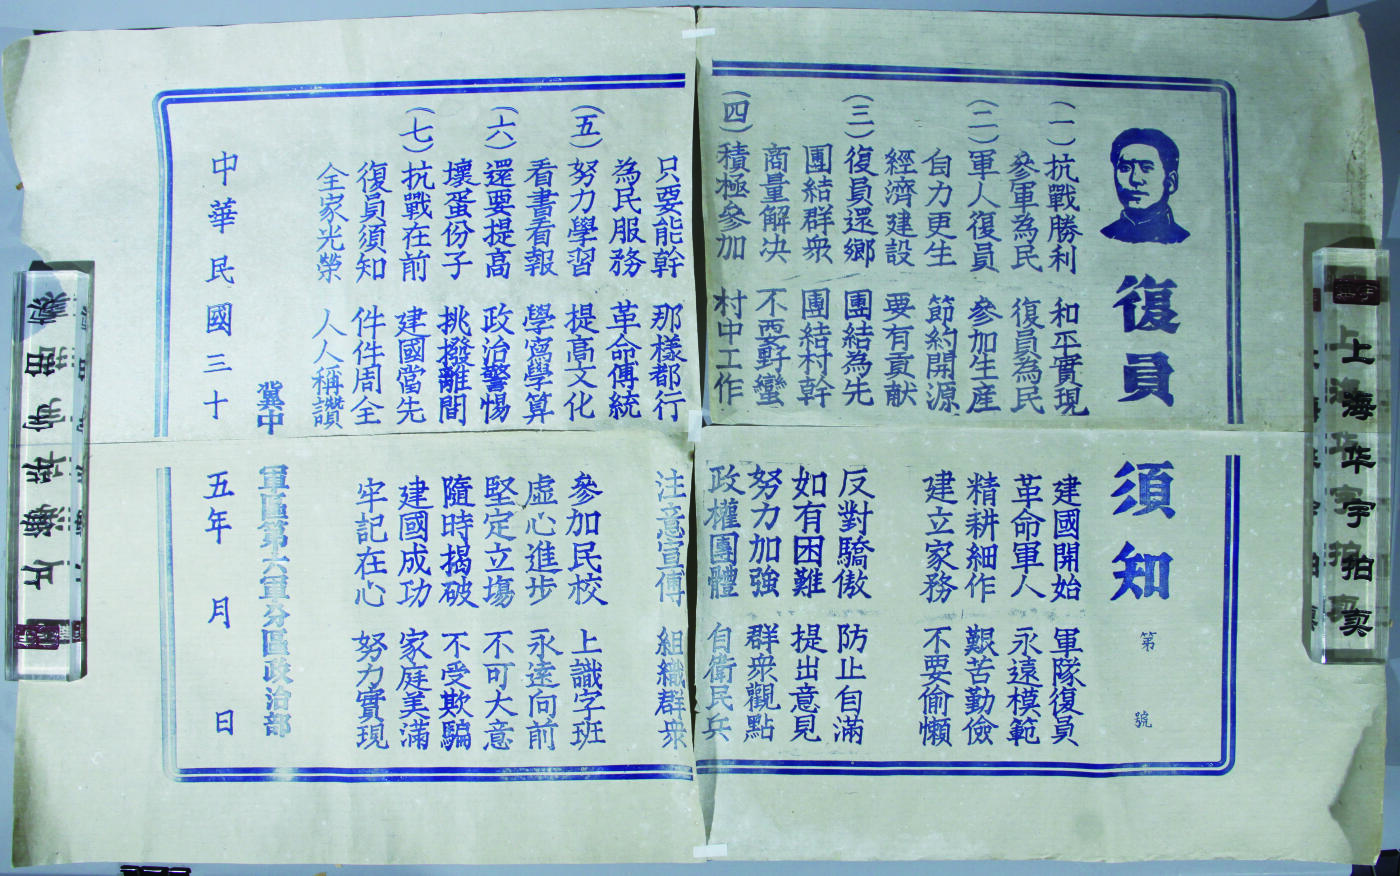 復員須知
第 號
(一) 抗戰勝利 和平實現 建國開始 軍隊復員
參軍為民 復員為民 革命軍人 永遠模範
(二) 軍人復員 參加生産 精耕細作 艱苦勤儉
自力更生 節約開源 建立家務 不要偷懶
經濟建設 要有貢献
(三) 復員還鄉 團結為先 反對驕傲 防止自滿
團結群衆 團結村幹 如有困難 提出意見
商量解决 不要野蠻 努力加強 群衆觀點
(四) 積極參加 村中工作 政權團體 自衛民兵
只要能幹 那樣都行 注意宣傳 組織群衆
為民服務 革命傳統
(五) 努力學習 提高文化 參加民校 上識字班
看書看報 學寫學算 虛心進步 永遠向前
(六) 還要提高 政治警惕 堅定立塲 不可大意
壞蛋份子 挑撥離間 隨時揭破 不受欺騙
(七) 抗戰在前 建國當先 建國成功 家庭美滿
復員須知 件件周全 牢記在心 努力實現
全家光榮 人人稱讚
冀中軍區第六軍分區政治部
中華民國三十五年 月 日
上海华宇拍卖
上海华宇拍卖